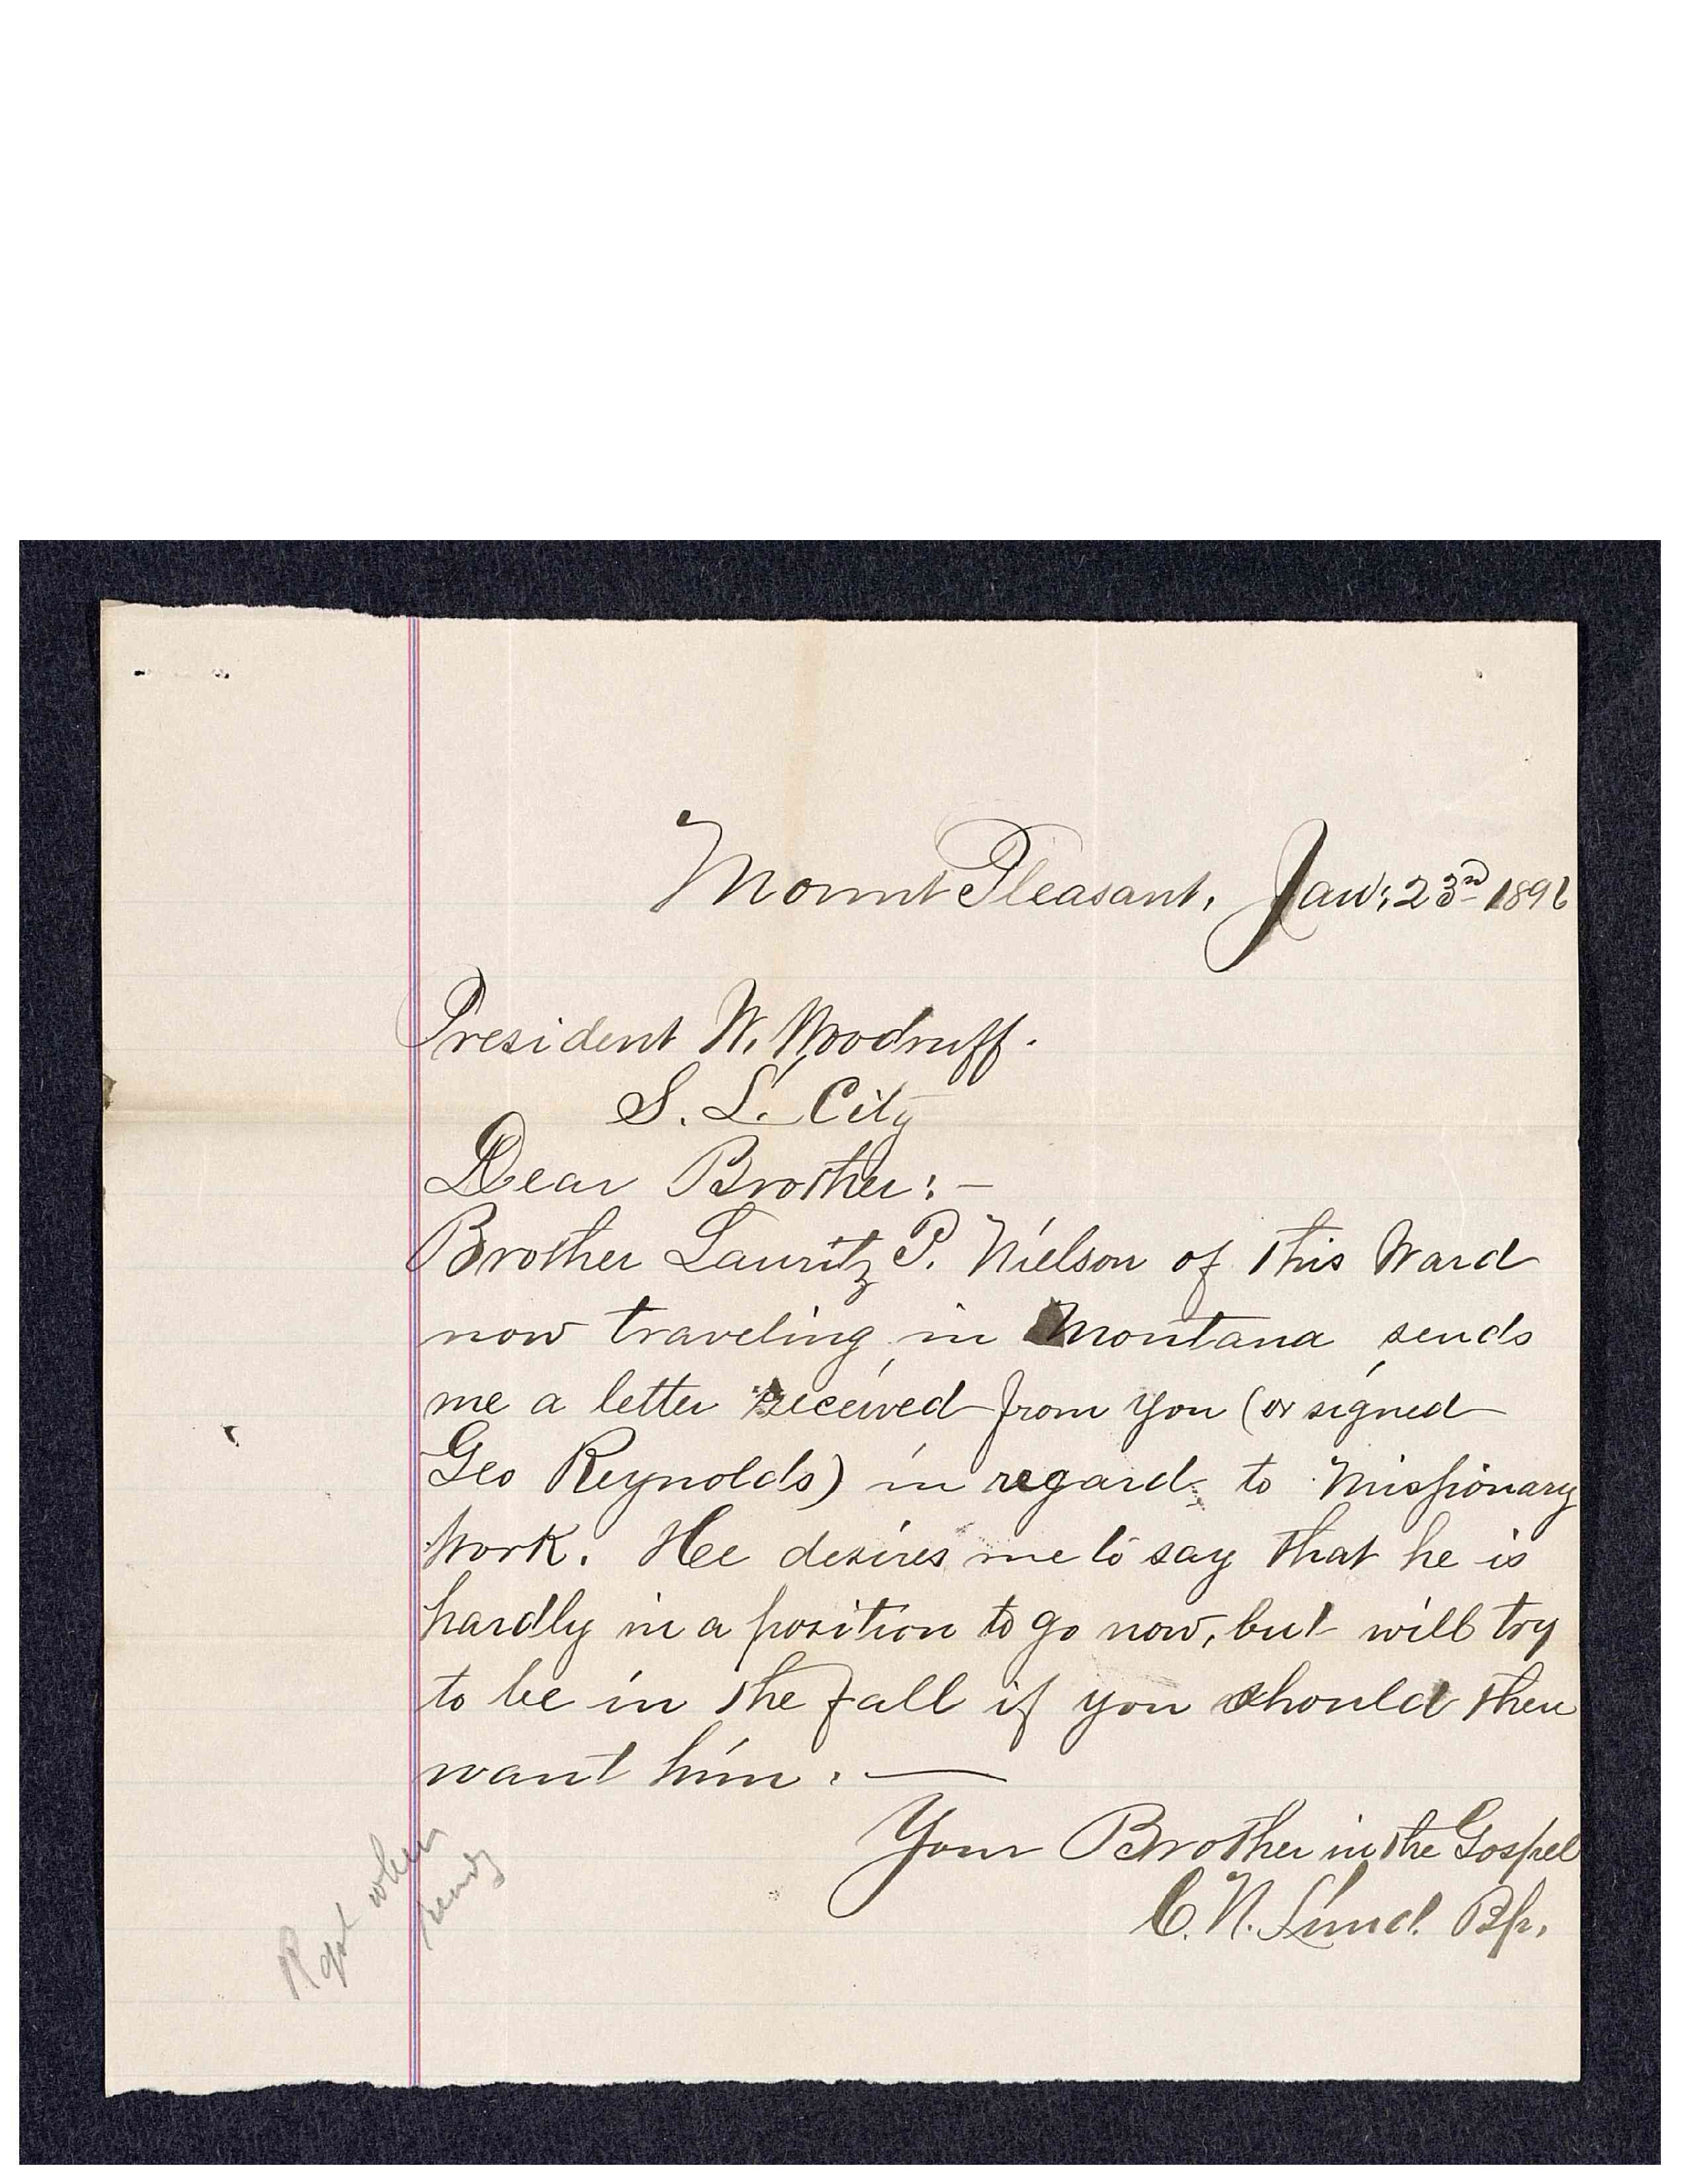 Mount Pleasant, Jan; 23rd 1896
President W. Woodruff.
S. L. City
Dear Brother:—
Brother Lauritz P. Nielson of this Ward
now traveling in Montana sends
me a letter received from you (or signed
Geo Reynolds) in regard to Missionary
Work. He desires me to say that he is
hardly in a position to go now, but will try
to be in the fall if you should then
want him. —
Your Brother in the Gospel
C. N. Lund. Bp.
Rept when
ready